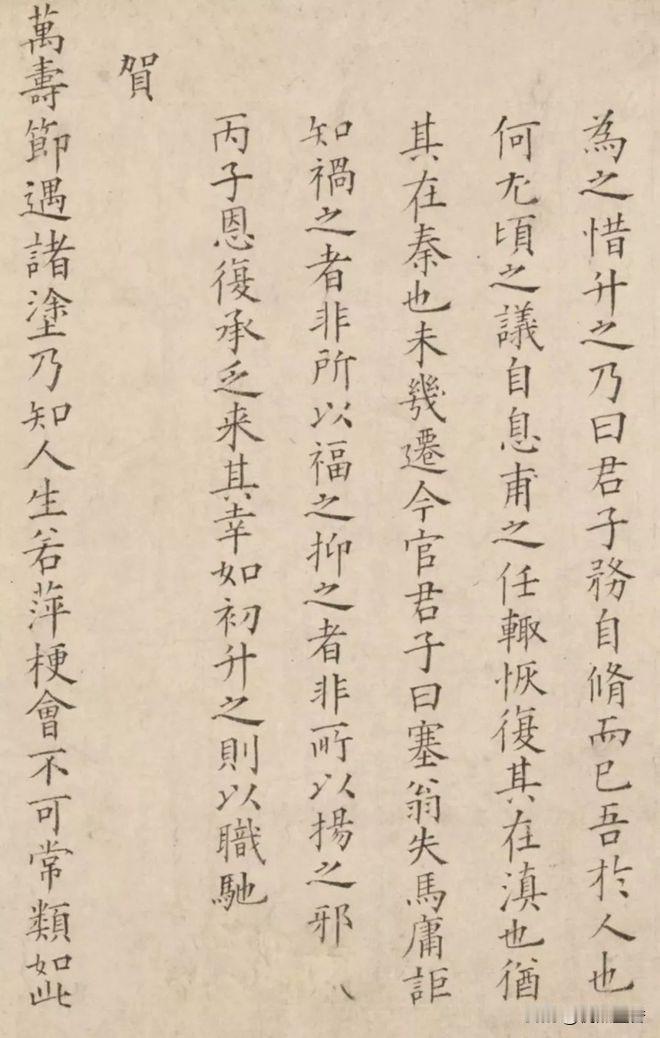 為之惜升之乃曰君子務自脩而已吾於人也
何尤頃之議自息甫之任輙恢復其在滇也猶
其在秦也未幾遷今官君子曰塞翁失馬庸詎
知禍之者非所以福之抑之者非所以揚之邪
丙子恩復承乏来其幸如初升之則以職馳
賀
萬壽節遇諸塗乃知人生若萍梗會不可常類如此